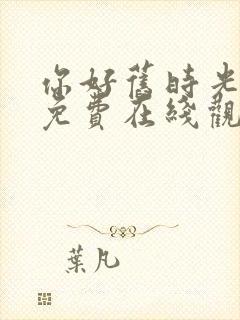 你好舊時光
免費在綫觀
葉凡